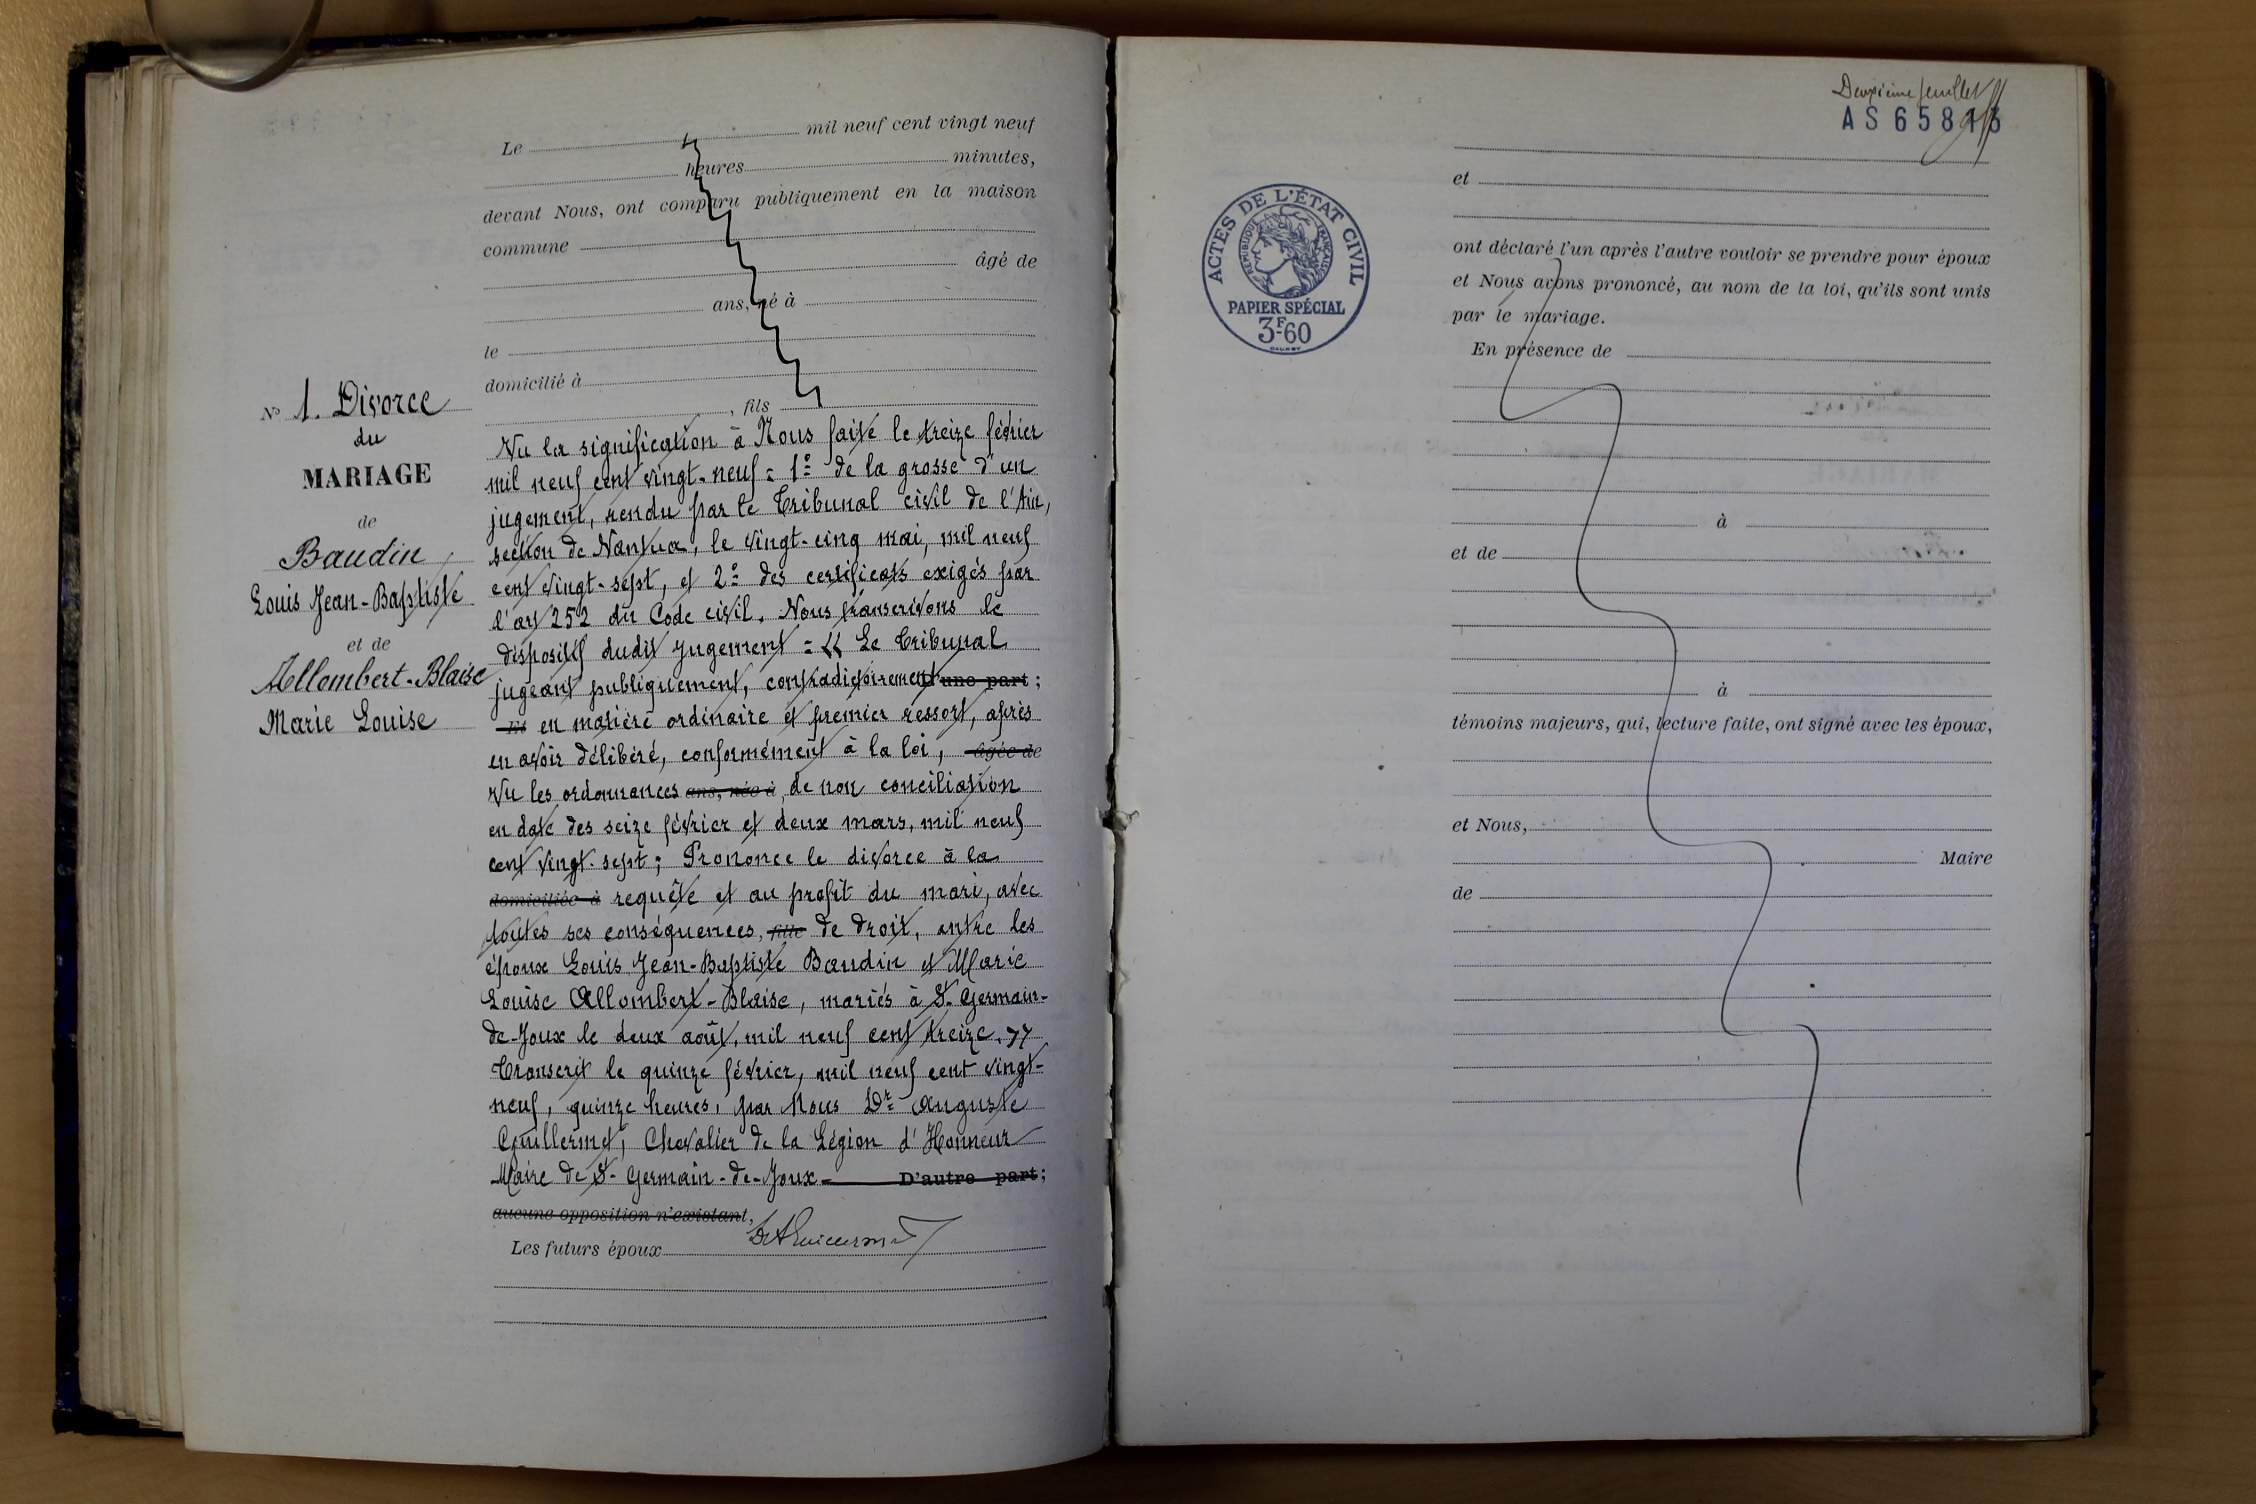 Le mil neuf cent vingt neuf
heures minutes,
devant Nous, ont comparu publiquement en la maison
commune
âgé de
ans, né à
le
domicilié à
, fils
N° 1. Divorce
du
MARIAGE
de
Baudin
Louis Jean-Baptiste
et de
Allombert-Blaise
Marie Louise
Vu la signification à Nous faite le treize février
mil neuf cent vingt-neuf = 1° de la grosse d'un
jugement, rendu par le Tribunal civil de l'Ain,
section de Nantua, le vingt-cinq mai, mil neuf
cent vingt-sept, et 2° des certificats exigés par
l'art 252 du Code civil. Nous transcrivons le
dispositif dudit jugement = « Le Tribunal
jugeant publiquement, contradictoirement une part ;
en matière ordinaire et premier ressort, après
en avoir délibéré, conformément à la loi, âgée de
Vu les ordonnances ans, née à de non conciliation
en date des seize février et deux mars, mil neuf
cent vingt-sept ; Prononce le divorce à la
domiciliée à requête et au profit du mari, avec
toutes ses conséquences, fille de droit, entre les
époux Louis Jean-Baptiste Baudin et Marie
Louise Allombert-Blaise, mariés à St Germain-
de-Joux le deux août, mil neuf cent treize. »
Transcrit le quinze février, mil neuf cent vingt-
neuf, quinze heures, par Nous Dr Auguste
Guillermet, Chevalier de la Légion d'Honneur
Maire de St Germain-de-Joux D'autre part ;
aucune opposition n'existant,
Les futurs époux
Deuxième feuillet
AS 65813
ACTES DE L'ÉTAT CIVIL
RÉPUBLIQUE FRANÇAISE
PAPIER SPÉCIAL
3F.60
et
ont déclaré l'un après l'autre vouloir se prendre pour époux
et Nous avons prononcé, au nom de la loi, qu'ils sont unis
par le mariage.
En présence de
à
et de
à
témoins majeurs, qui, lecture faite, ont signé avec les époux,
et Nous,
Maire
de